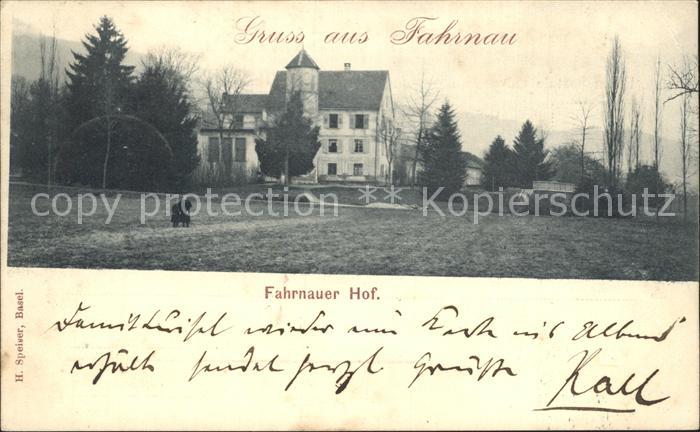 Gruss aus Fahrnau
copy print ** Kopierschutz **
Fahrnauer Hof.
H. Speiser, Basel.
Damit Luisel wieder eine Karte ins Album
erhält sendet herzl Grüsse Karl